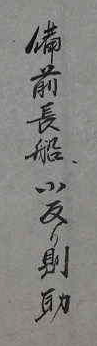 備前長船、小反り則助